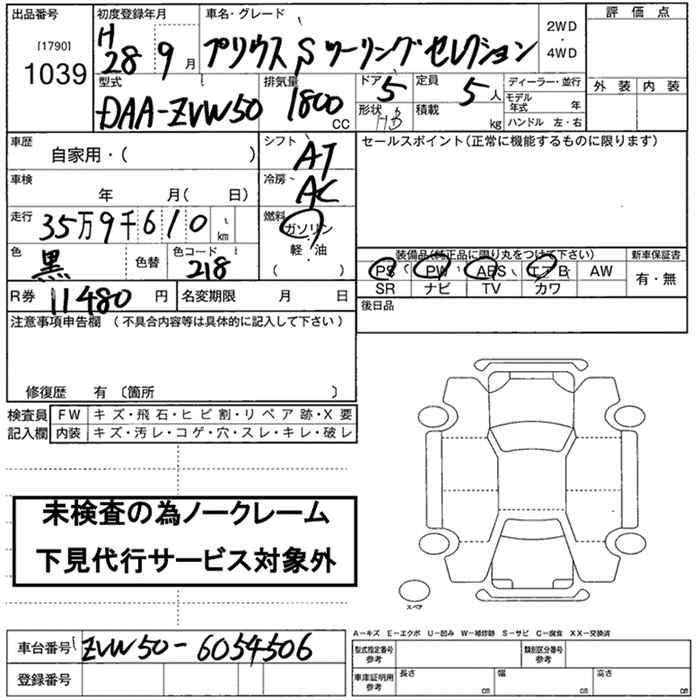 出品番号 初度登録年月 車名・グレード 評価点
[1790]
1039
H28 9月 プリウス Sツーリングセレクション 2WD・4WD
型式 排気量 ドア 定員 ディーラー・並行 外装 内装
DAA-ZVW50 1800cc 5 5人 モデル年式 年
形状 HB 積載 kg ハンドル 左・右
車歴 シフト セールスポイント(正常に機能するものに限ります)
自家用・( ) AT
車検 冷房
年 月( 日) AC
走行 燃料
35万9千610km ガソリン
色 色替 色コード 軽油
黒 218 ( )
装備品(純正品に限り丸をつけて下さい) 新車保証書
PS PW ABS エアB AW 有・無
SR ナビ TV カワ
R券 11480円 名変期限 月 日 後日品
注意事項申告欄(不具合内容等は具体的に記入して下さい)
修復歴 有〔箇所 〕
検査員 FW キズ・飛石・ヒビ割・リペア跡・X要
記入欄 内装 キズ・汚レ・コゲ・穴・スレ・キレ・破レ
未検査の為ノークレーム
下見代行サービス対象外
スペア
A-キズ E-エクボ U-凹み W-補修跡 S-サビ C-腐食 XX-交換済
車台番号 ZVW50-6054506 型式指定番号 参考 類別区分番号 参考
登録番号 車庫証明用 参考 長さ cm 幅 cm 高さ cm